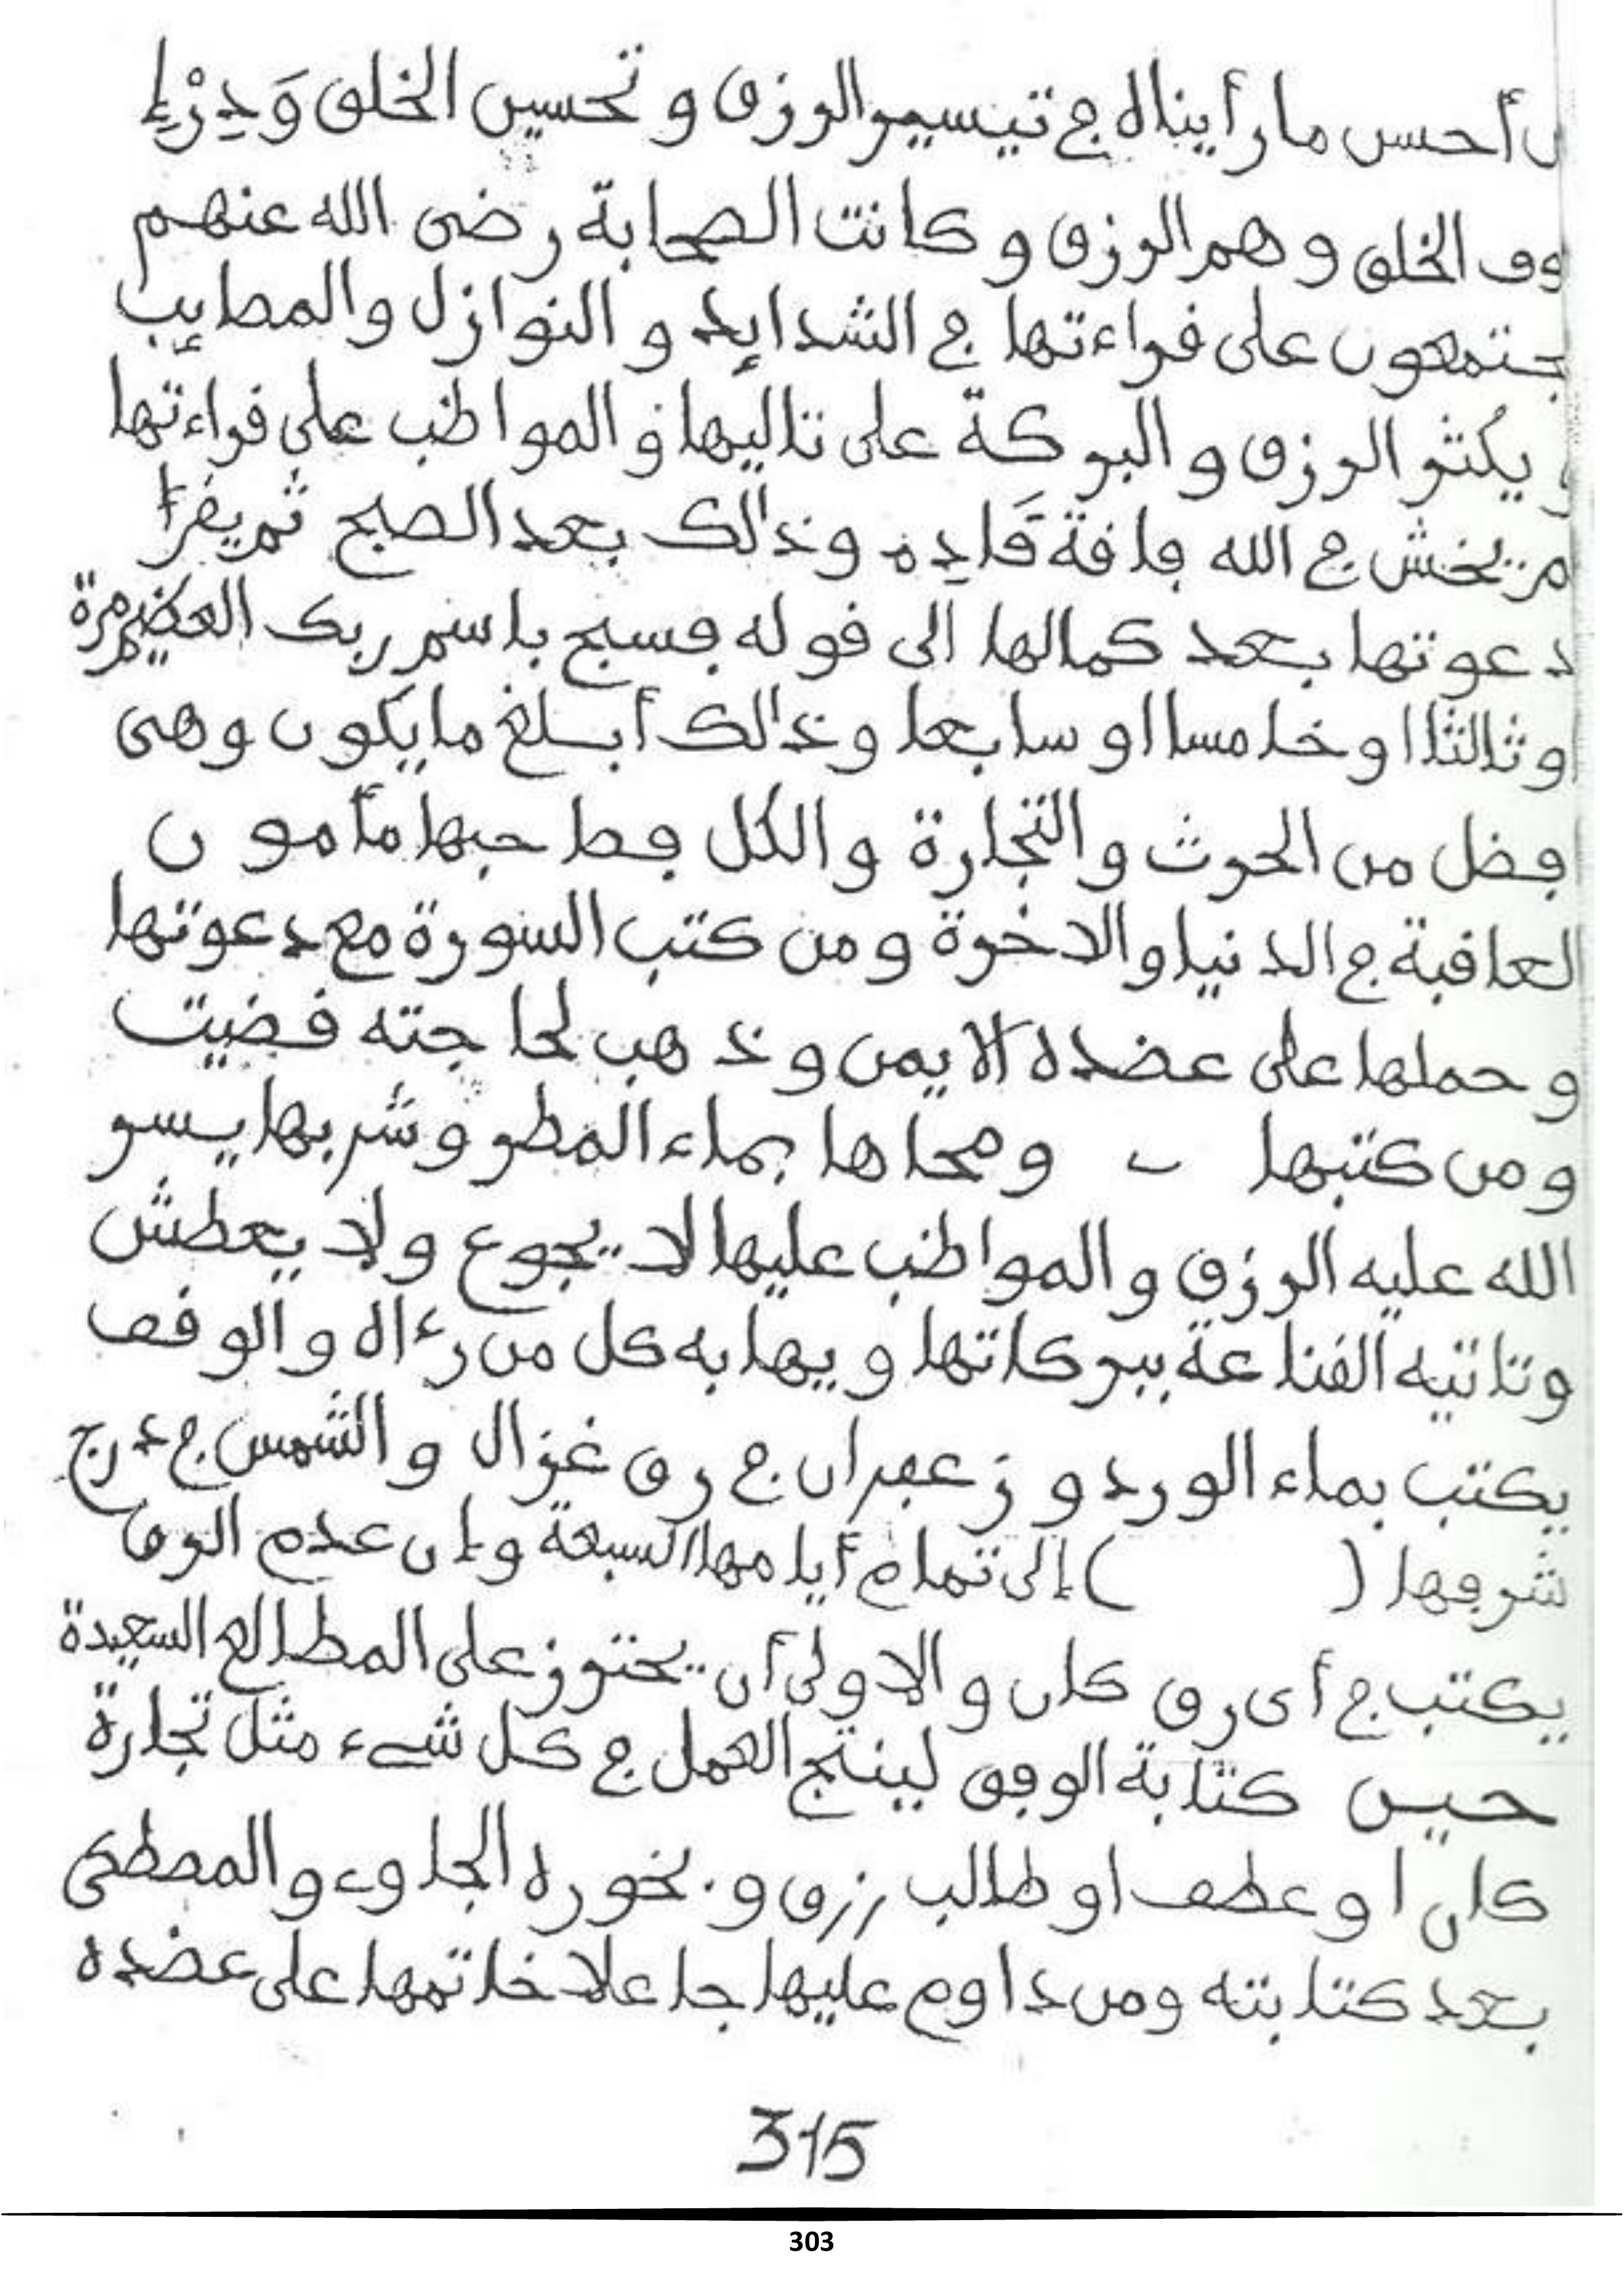 ن أحسن ما رأيناه في تيسير الرزق و تحسين الخلق وَدِرْءِ
وف الخلق و هم الرزق و كانت الصحابة رضى الله عنهم
جتمعون على قراءتها في الشدايد و النوازل والمصايب
يكثر الرزق و البركة على تاليها و المواظب على قراءتها
من يخش في الله فاقة قَادِه وذالك بعد الصبح ثم يقرأ
دعوتها بعد كمالها الى قوله فسبح باسم ربك العظيم مرة
او ثالثا او خامسا او سابعا وذالك أبلغ ما يكون وهى
افضل من الحرث والتجارة والكل فصاحبها مأمون
العاقبة في الدنيا والاخرة ومن كتب السورة مع دعوتها
و حملها على عضده الايمن و ذهب لحاجته قضيت
ومن كتبها ومحاها بماء المطر و شربها يسر
الله عليه الرزق و المواظب عليها لا يجوع ولا يعطش
وتاتيه القناعة ببركاتها و يهابه كل من رءاه و الوفق
يكتب بماء الورد و زعفران في رق غزال و الشمس في درج
شرفها ( ) إلى تمام أيامها السبعة وإن عدم الرق
يكتب في أى رق كان و الاولى أن يحترز على المطالع السعيدة
حين كتابة الوفق لينتج العمل في كل شيء مثل تجارة
كان او عطف او طالب رزق و بخوره الجاوي والمصطكى
بعد كتابته ومن داوم عليها جاعلا خاتمها على عضده
315
303